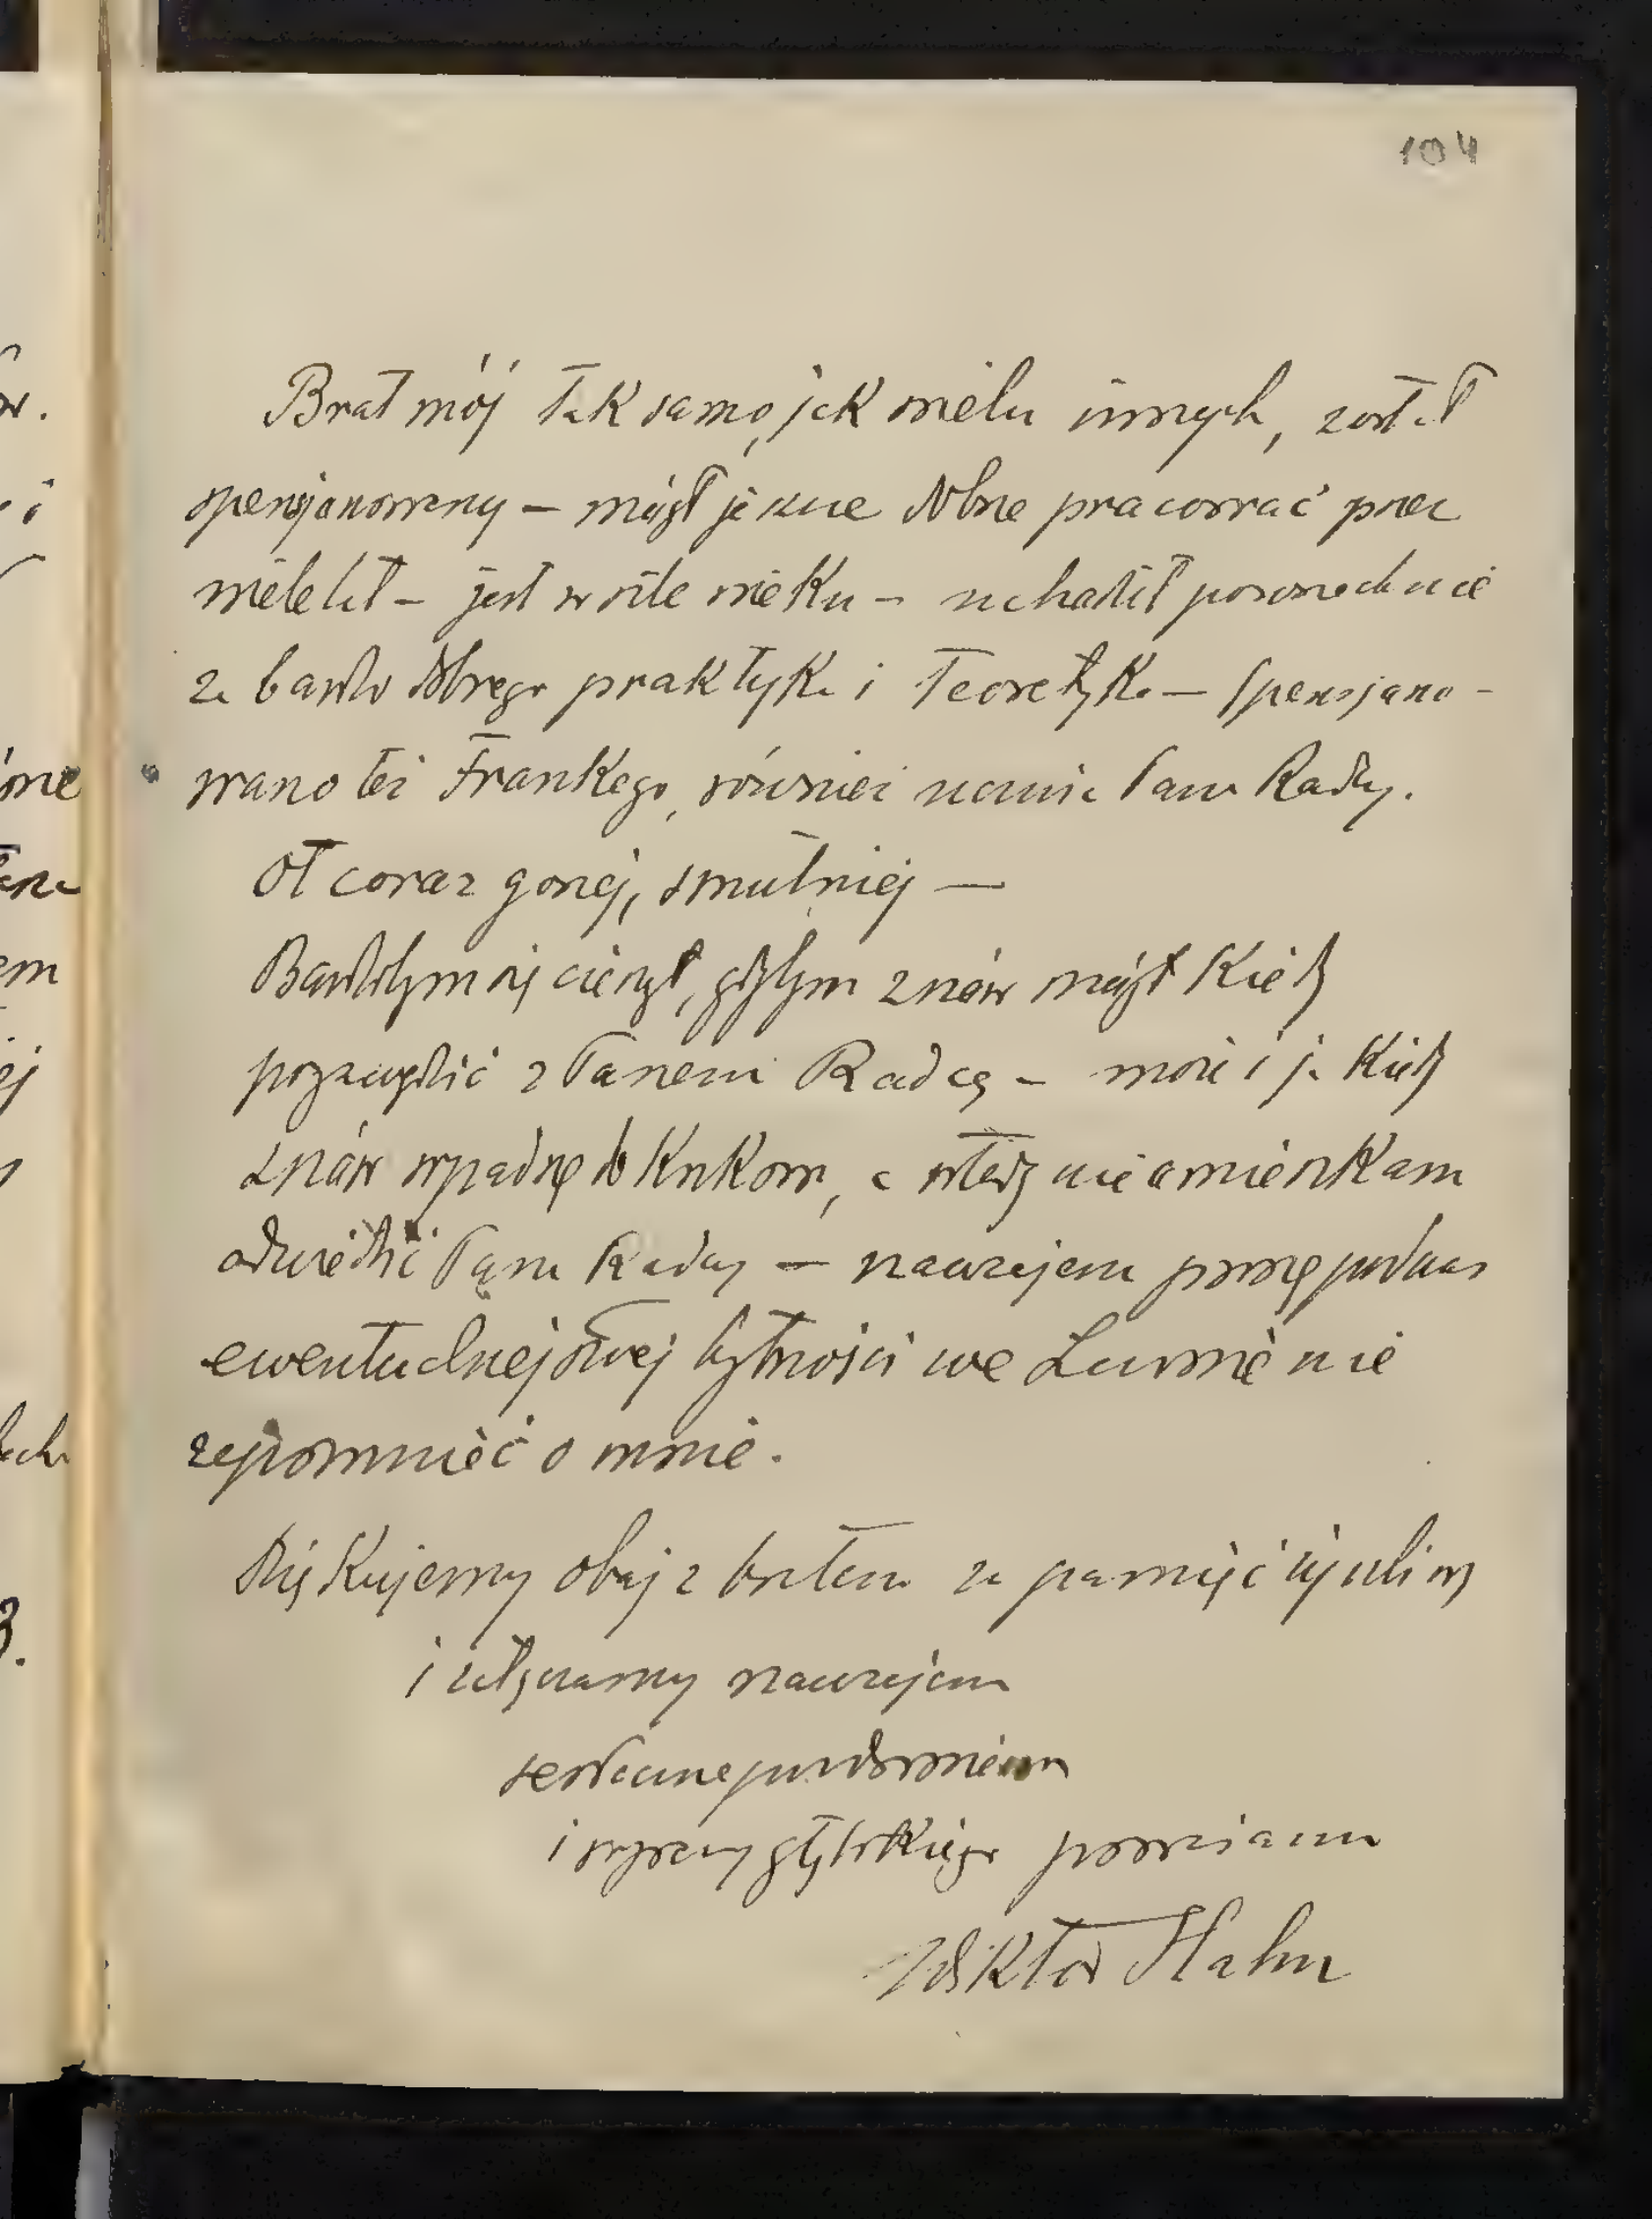 104
Brat mój tak samo, jak wielu innych, został
spensjonowany – mógł jeszcze dobrze pracować przez
wiele lat – jest w sile wieku – uchodził powszechnie
za bardzo dobrego praktyka i teoretyka – spensjono-
wano też Frankego, również ucznia Pana Radcy.
Ot coraz gorzej, smutniej —
Bardzobym się cieszył, gdybym znów mógł kiedy
pogawędzić z Panem Radcą – może i ja kiedy
znów wpadnę do Krakowa, a wtedy nie omieszkam
odwiedzić Pana Radcy – nawzajem proszę podczas
ewentualnej swej bytności we Lwowie nie
zapomnieć o mnie.
Dziękujemy obaj z bratem za pamięć i
i załączamy nawzajem
serdeczne pozdrowienia
i wyrazy głębokiego poważania
Wiktor Hahn